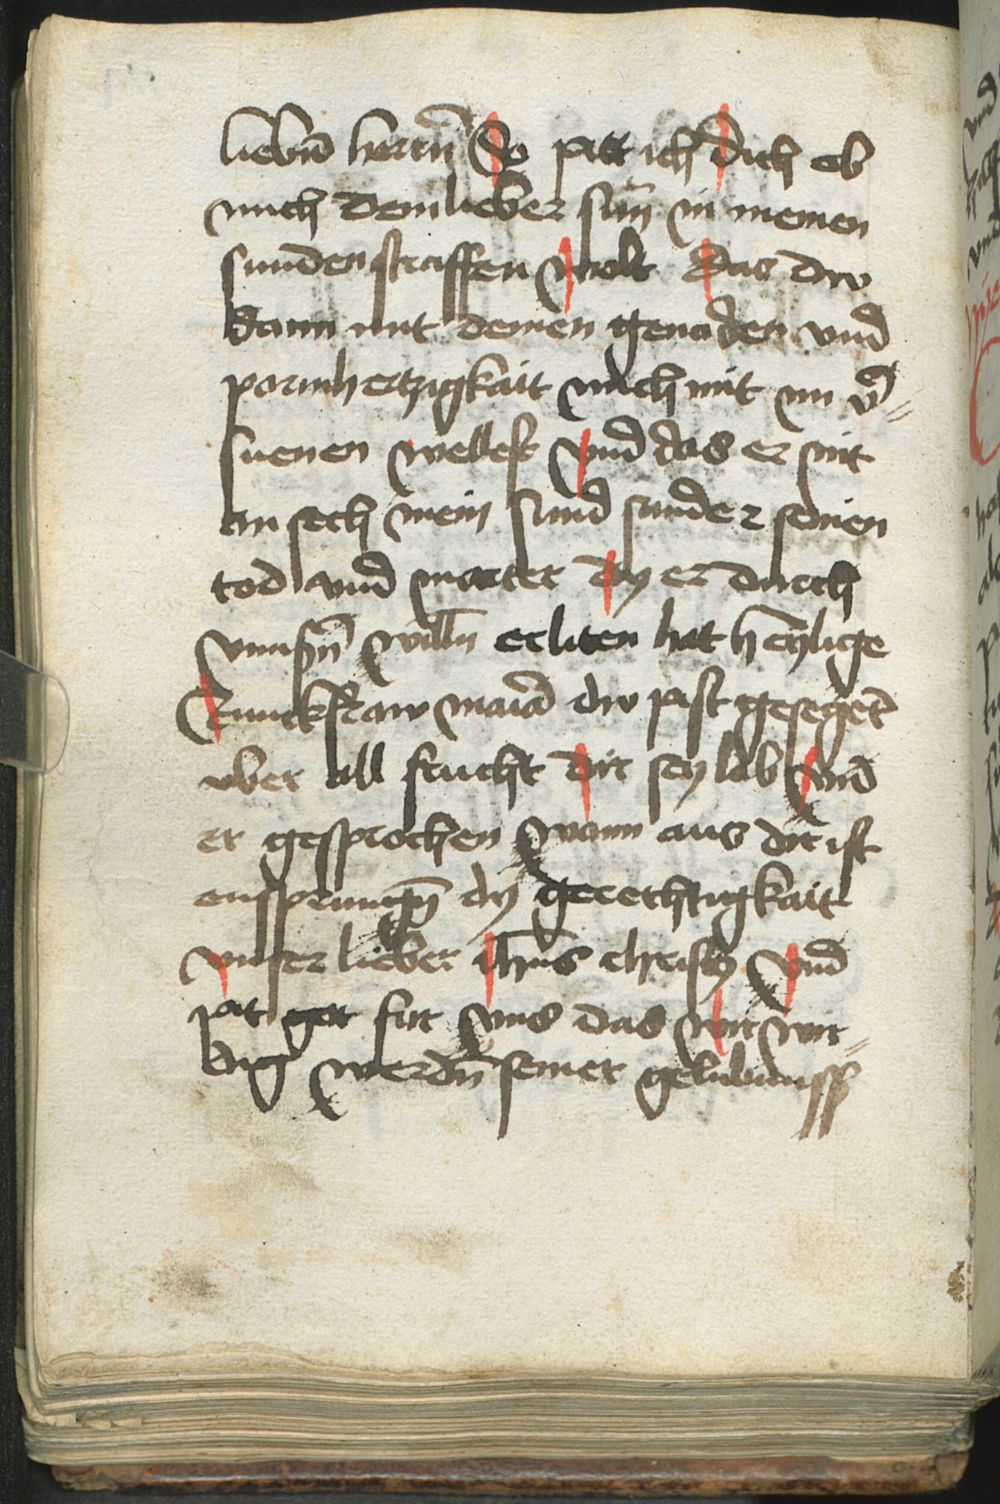 liebn̄ herrn̄ So pitt ich dich ob
mich dein lieber sun in meinen
sunden straffen wolt das dw
dann mit deinen genaden vnd
parmhertzigkait mich mit im v̄=
suenen wellest vnd das er nit
an sech mein sund sunder seinen
tod vnd marter dy er durch
vnnsn̄ willn̄ erliten hat heylige
Junckfraw maria dw pist gesegēt
vber all frucht dir sey lob vnd
er gesprochen wann aus dir ist
ensprungn̄ dy gerechtigkait
vnser lieber ihūs christus vnd
pit got fur vns das wir wir=
dig werdn̄ seiner gelubnuss